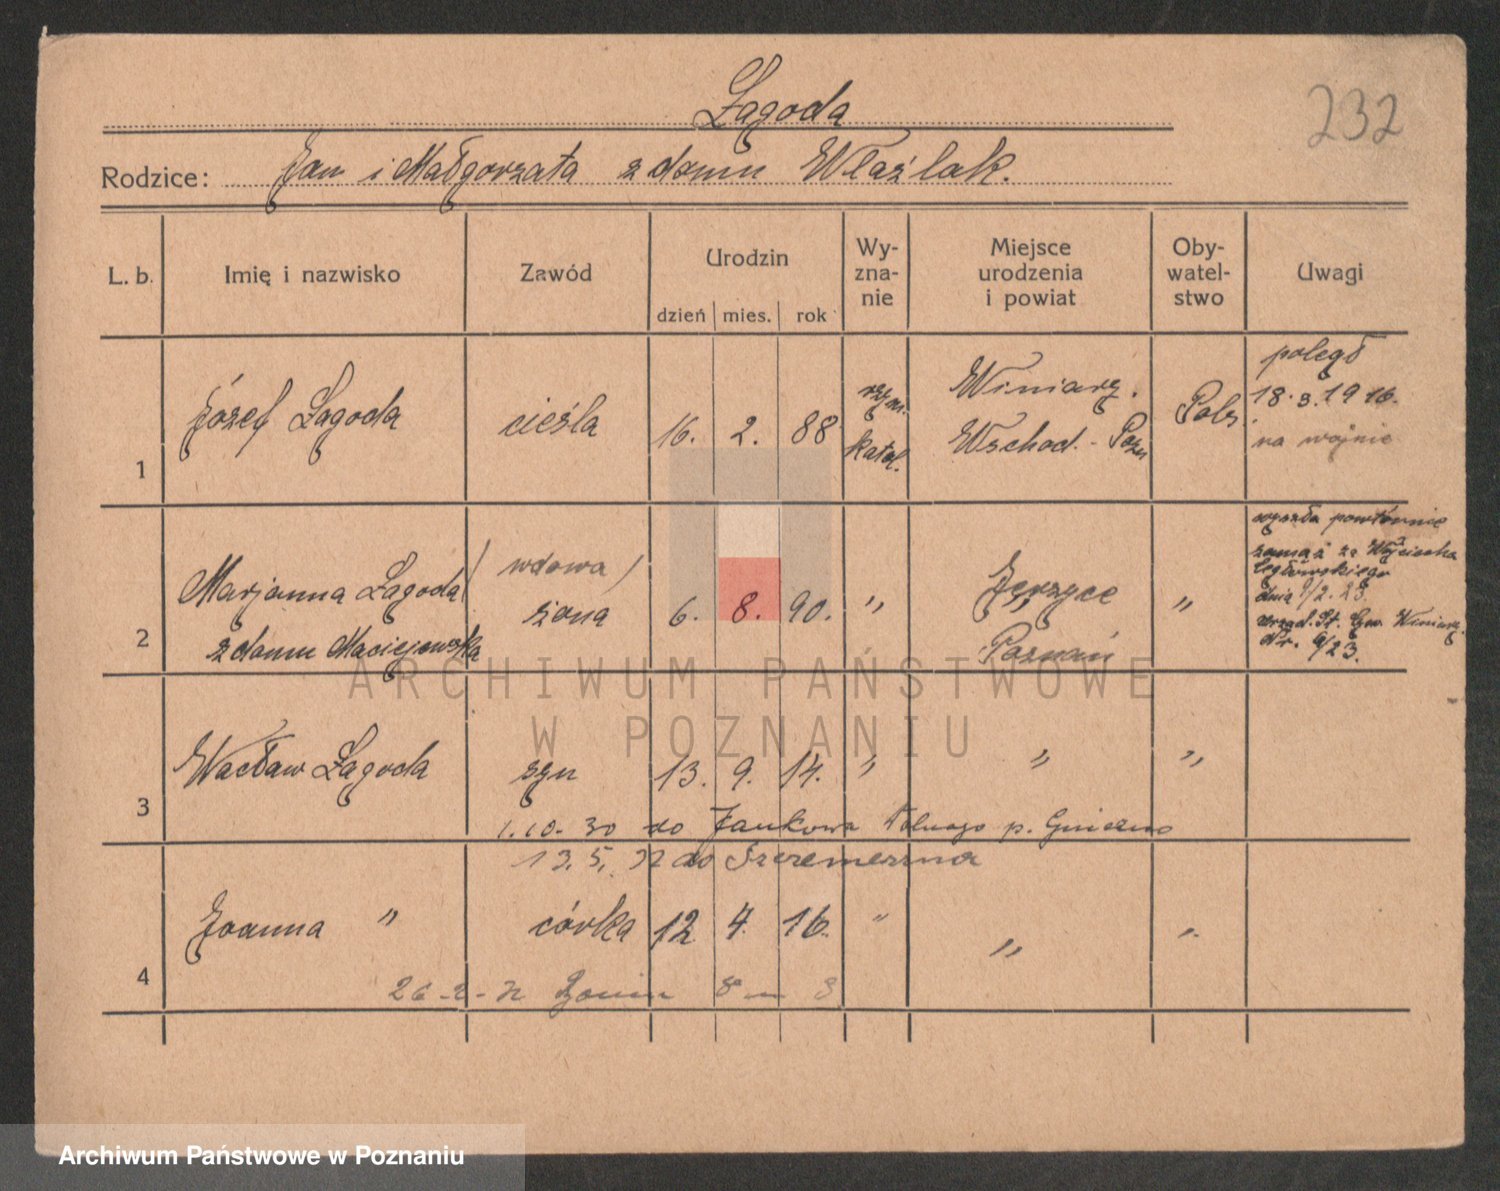 Łagoda
232
Rodzice: Jan i Małgorzata z domu Właźlak.
L. b.
Imię i nazwisko
Zawód
Urodzin
dzień mies. rok
Wy-
zna-
nie
Miejsce
urodzenia
i powiat
Oby-
watel-
stwo
Uwagi
1
Józef Łagoda
cieśla
16. 2. 88
rzym.
katol.
Winiarz.
Wschod. - Pozn
Pols.
poległ
18.3.1916.
na wojnie
2
Marjanna Łagoda
z domu Maciejewska
/ wdowa /
żona
6. 8. 90.
"
Jerzyce
"
Poznań
"
wyszła powtórnie
zamąż za Wojciecha
dnia 9/2. 23.
Urząd. St. Cyw. Winiarz.
Nr. 9/23.
3
Wacław Łagoda
syn
13. 9. 14.
"
"
"
1.10.30 do Jankowa Dolnego p. Gniezno
13.5.32 do
4
Joanna "
córka
12 4. 16.
"
"
"
ARCHIWUM PAŃSTWOWE
W POZNANIU
Archiwum Państwowe w Poznaniu